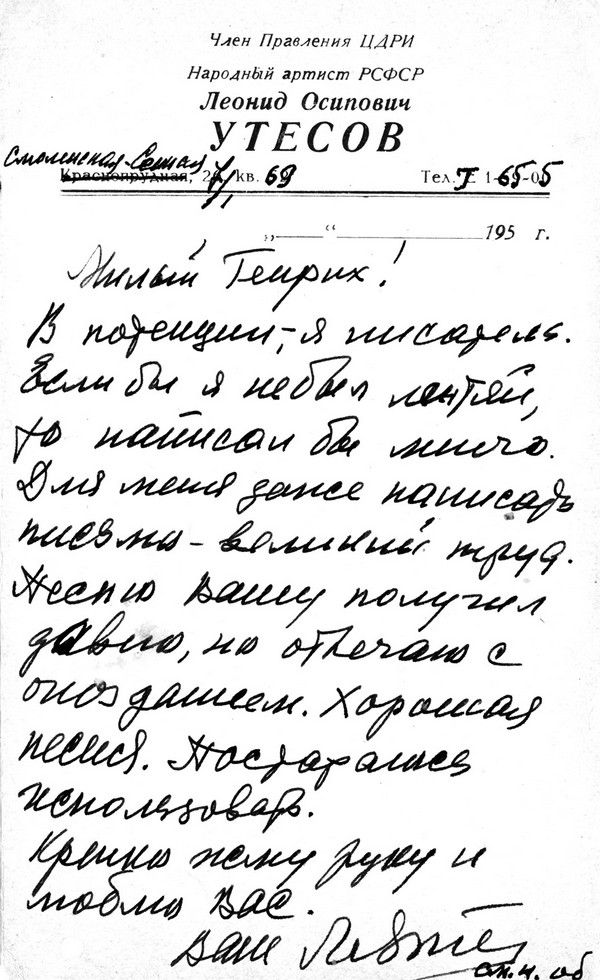 Член Правления ЦДРИ
Народный артист РСФСР
Леонид Осипович
УТЕСОВ
Смоленская-Сенная
Краснопрудная, кв. 69
Тел. 1-65-05
„ “ 195 г.
Милый Генрих!
В потенции, – я писатель.
Если бы я не был лентяй,
то написал бы много.
Для меня даже написать
письмо – великий труд.
Песню Вашу получил
давно, но отвечаю с
опозданием. Хорошая
песня. Постараюсь
использовать.
Крепко жму руку и
люблю Вас.
Ваш